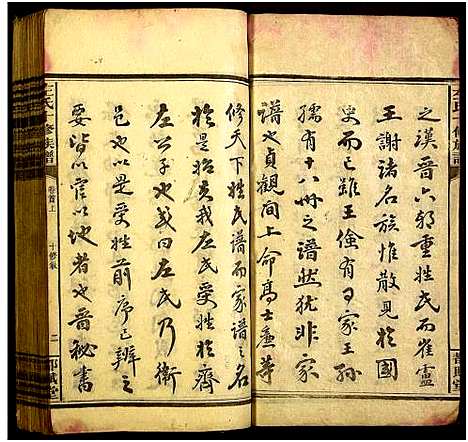 之漢晉六朝重姓氏而崔盧
王謝諸名族惟散見於國
史而已雖王儉有百家王孫
孺有十八州之譜然猶非家
譜也貞觀間上命高士廉等
修天下姓氏譜而家譜之名
於是始夫我左氏受姓於齊
左公子也或曰左氏乃衛
邑也以是受姓前序已辨之
要皆以官以地者也晉秘書
左氏十修族譜
卷首上
十修氣
二
都賦堂
左氏十修族譜
都賦堂